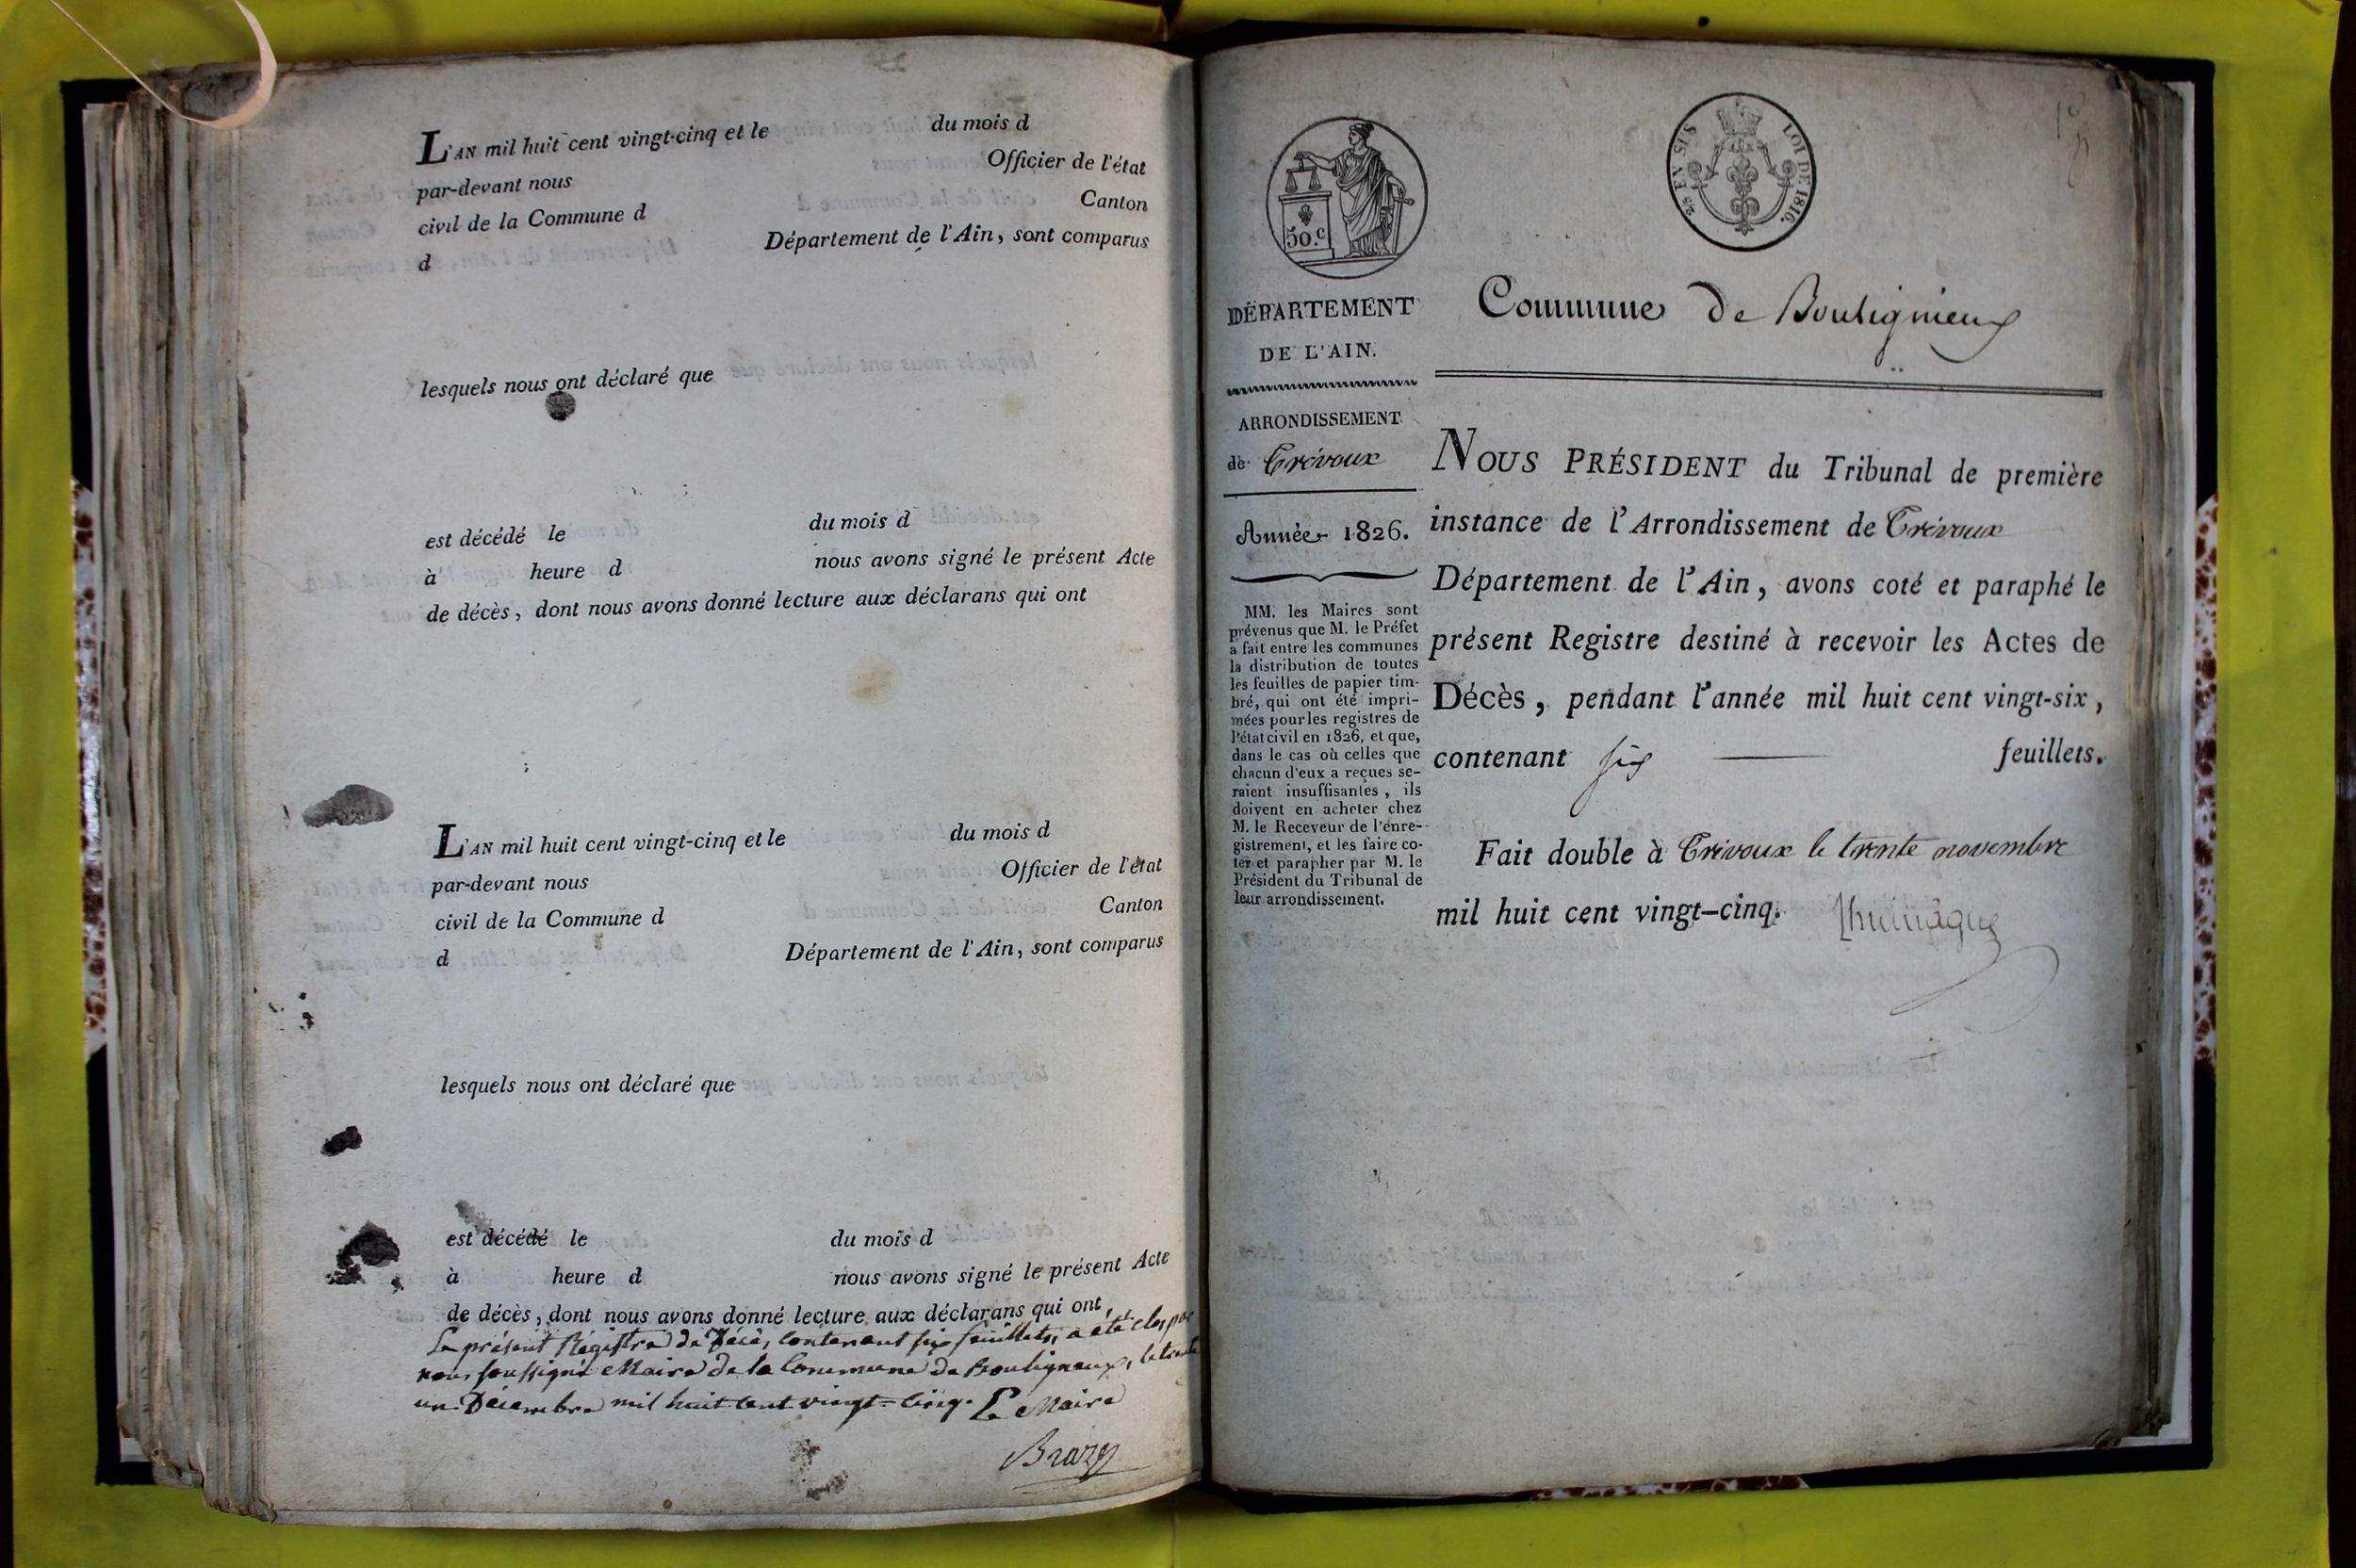 L'AN mil huit cent vingt-cinq et le du mois d
par-devant nous Officier de l'état
civil de la Commune d Canton
d Département de l'Ain, sont comparus
lesquels nous ont déclaré que
est décédé le du mois d
à heure d nous avons signé le présent Acte
de décès, dont nous avons donné lecture aux déclarans qui ont
L'AN mil huit cent vingt-cinq et le du mois d
par-devant nous Officier de l'état
civil de la Commune d Canton
d Département de l'Ain, sont comparus
lesquels nous ont déclaré que
est décédé le du mois d
à heure d nous avons signé le présent Acte
de décès, dont nous avons donné lecture aux déclarans qui ont
Le présent Régistre de Décès, contenant six feuillets, a été clos par
nous soussigné Maire de la Commune de Bouligneux, le trente
un Décembre mil huit cent vingt-cinq. Le Maire
50.c
25 EN SUS
LOI DE 1816.
DÉPARTEMENT
DE L'AIN.
ARRONDISSEMENT
de Trévoux
Année 1826.
MM. les Maires sont
prévenus que M. le Préfet
a fait entre les communes
la distribution de toutes
les feuilles de papier tim-
bré, qui ont été impri-
mées pour les registres de
l'état civil en 1826, et que,
dans le cas où celles que
chacun d'eux a reçues se-
raient insuffisantes, ils
doivent en acheter chez
M. le Receveur de l'enre-
gistrement, et les faire co-
ter et parapher par M. le
Président du Tribunal de
leur arrondissement.
Commune de Bouligneux
NOUS PRÉSIDENT du Tribunal de première
instance de l'Arrondissement de Trévoux
Département de l'Ain, avons coté et paraphé le
présent Registre destiné à recevoir les Actes de
Décès, pendant l'année mil huit cent vingt-six,
contenant six feuillets.
Fait double à Trévoux le trente novembre
mil huit cent vingt-cinq.